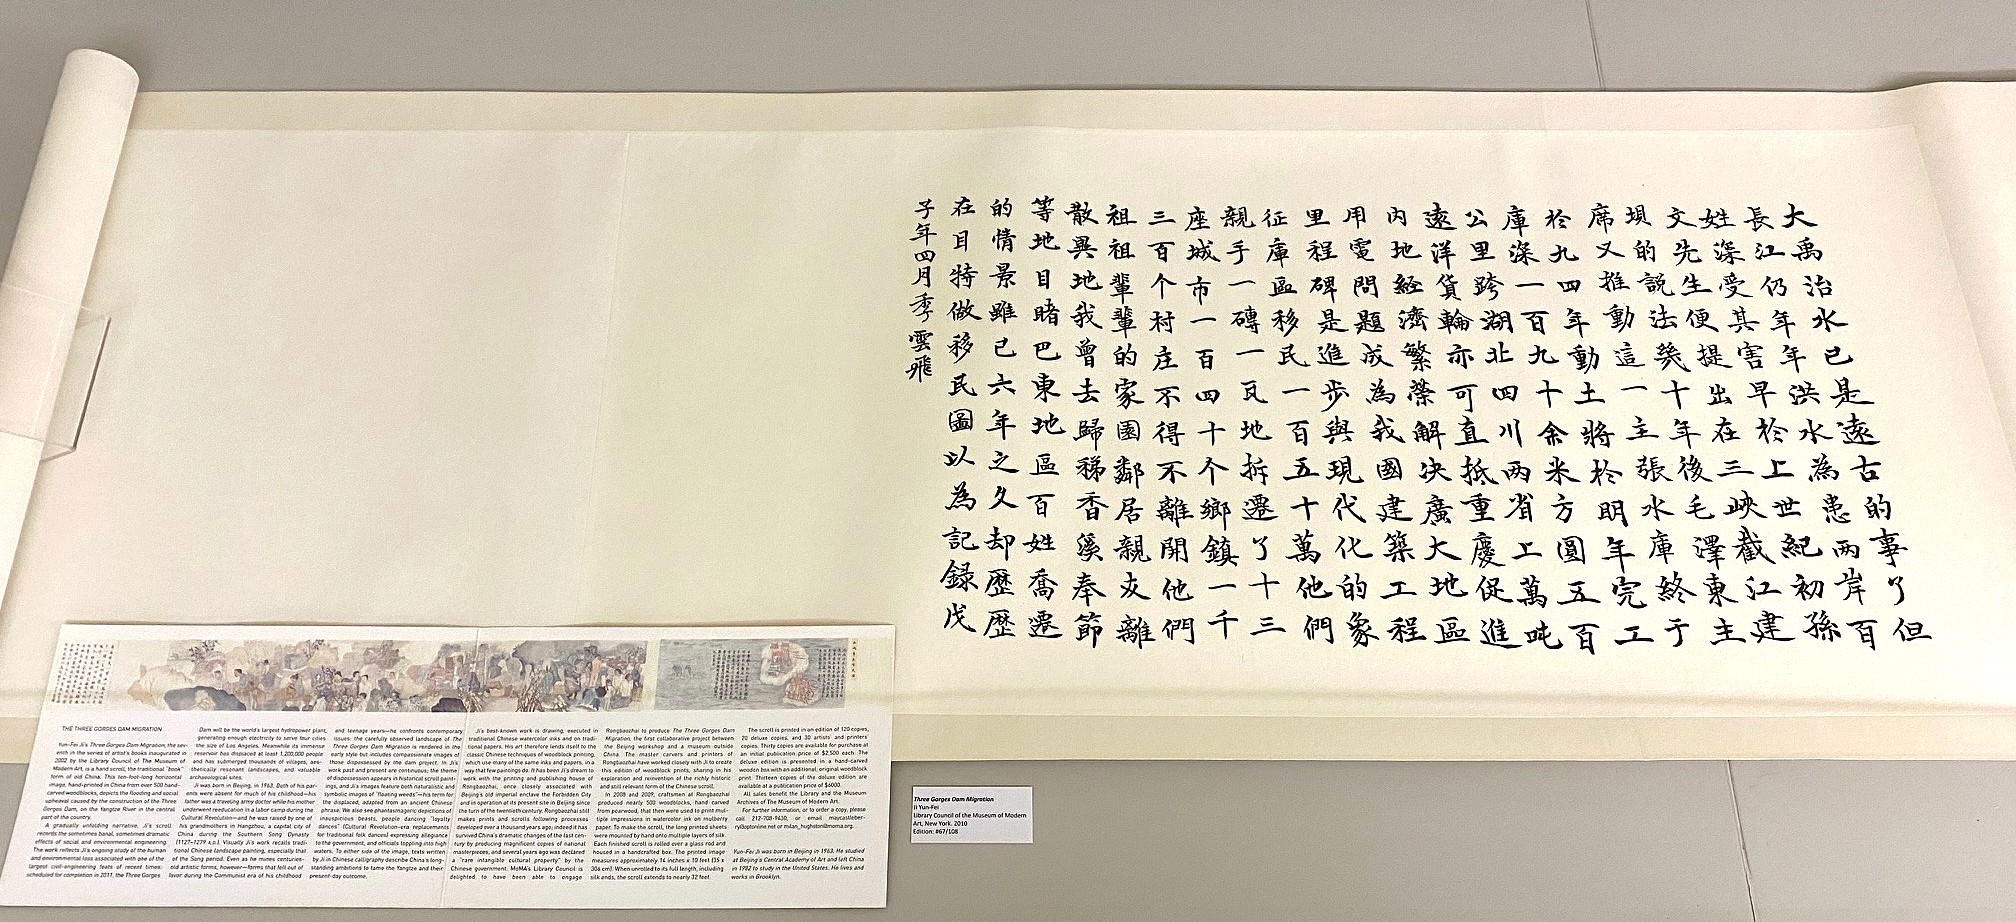 大禹治水已是遠古的事了但
長江仍年年洪水為患兩岸百
姓深受其害早於上世紀初孫
文先生便提出在三峽截江建
壩的説法幾十年後毛澤東主
席又推動這一主張水庫終于
於九四年動土將於明年完工
庫深一百九十余米方圓五百
公里跨湖北四川兩省上萬吨
遠洋貨輪亦可直抵重慶促進
内地經濟繁榮解决廣大地區
用電問題成為我國建築工程
里程碑是進步與現代化的象
征庫區移民一百五十萬他們
親手一磚一瓦地拆遷了十三
座城市一百四十个鄉鎮一千
三百个村庄不得不離開他們
祖祖輩輩的家園鄰居親友離
散異地我曾去歸秭香溪奉節
等地目睹巴東地區百姓喬遷
的情景雖已六年之久却歷歷
在目特做移民圖以為記録戊
子年四月季雲飛
THE THREE GORGES DAM MIGRATION
Yun-Fei Ji's Three Gorges Dam Migration, the sev-
enth in the series of artist's books inaugurated in
2002 by the Library Council of The Museum of
Modern Art, is a hand scroll, the traditional "book"
form of old China. This ten-foot-long horizontal
image, hand-printed in China from over 500 hand-
carved woodblocks, depicts the flooding and social
upheaval caused by the construction of the Three
Gorges Dam, on the Yangtze River in the central
part of the country.
A gradually unfolding narrative, Ji's scroll
recounts the sometimes banal, sometimes dramatic
effects of social and environmental engineering.
The work reflects Ji's ongoing study of the human
and environmental loss associated with one of the
largest civil-engineering feats of recent times:
scheduled for completion in 2011, the Three Gorges
Dam will be the world's largest hydropower plant,
generating enough electricity to serve four cities
the size of Los Angeles. Meanwhile its immense
reservoir has displaced at least 1,200,000 people
and has submerged thousands of villages, aes-
thetically resonant landscapes, and valuable
archaeological sites.
Ji was born in Beijing, in 1963. Both of his par-
ents were absent for much of his childhood—his
father was a traveling army doctor while his mother
underwent reeducation in a labor camp during the
Cultural Revolution—and he was raised by one of
his grandmothers in Hangzhou, a capital city of
China during the Southern Song Dynasty
(1127–1279 A.D.). Visually Ji's work recalls tradi-
tional Chinese landscape painting, especially that
of the Song period. Even as he mines centuries-
old artistic forms, however—forms that fell out of
favor during the Communist era of his childhood
and teenage years—he confronts contemporary
issues: the carefully observed landscape of The
Three Gorges Dam Migration is rendered in the
early style but includes compassionate images of
those dispossessed by the dam project. In Ji's
work past and present are continuous; the theme
of dispossession appears in historical scroll paint-
ings, and Ji's images feature both naturalistic and
symbolic images of "floating weeds"—his term for
the displaced, adapted from an ancient Chinese
phrase. We also see phantasmagoric depictions of
inauspicious beasts, people dancing "loyalty
dances" (Cultural Revolution–era replacements
for traditional folk dances) expressing allegiance
to the government, and officials toppling into high
waters. To either side of the image, texts written
by Ji in Chinese calligraphy describe China's long-
standing ambitions to tame the Yangtze and their
present-day outcome.
Ji's best-known work is drawing, executed in
traditional Chinese watercolor inks and on tradi-
tional papers. His art therefore lends itself to the
classic Chinese techniques of woodblock printing,
which use many of the same inks and papers, in a
way that few paintings do. It has been Ji's dream to
work with the printing and publishing house of
Rongbaozhai, once closely associated with
Beijing's old imperial enclave the Forbidden City
and in operation at its present site in Beijing since
the turn of the twentieth century. Rongbaozhai still
makes prints and scrolls following processes
developed over a thousand years ago; indeed it has
survived China's dramatic changes of the last cen-
tury by producing magnificent copies of national
masterpieces, and several years ago was declared
a "rare intangible cultural property" by the
Chinese government. MoMA's Library Council is
delighted to have been able to engage
Rongbaozhai to produce The Three Gorges Dam
Migration, the first collaborative project between
the Beijing workshop and a museum outside
China. The master carvers and printers of
Rongbaozhai have worked closely with Ji to create
this edition of woodblock prints, sharing in his
exploration and reinvention of the richly historic
and still relevant form of the Chinese scroll.
In 2008 and 2009, craftsmen at Rongbaozhai
produced nearly 500 woodblocks, hand carved
from pearwood, that then were used to print mul-
tiple impressions in watercolor ink on mulberry
paper. To make the scroll, the long printed sheets
were mounted by hand onto multiple layers of silk.
Each finished scroll is rolled over a glass rod and
housed in a handcrafted box. The printed image
measures approximately 14 inches x 10 feet (35 x
306 cm). When unrolled to its full length, including
silk ends, the scroll extends to nearly 32 feet.
The scroll is printed in an edition of 120 copies,
20 deluxe copies, and 30 artists' and printers'
copies. Thirty copies are available for purchase at
an initial publication price of $2,500 each. The
deluxe edition is presented in a hand-carved
wooden box with an additional, original, working
print. Thirteen copies of the deluxe edition are
available at a publication price of $6000.
All sales benefit the Library and the Museum
Archives of The Museum of Modern Art.
For further information, or to order a copy, please
call 212-708-9430, or email maycastleber-
ry@optonline.net or milan_hughston@moma.org.
Yun-Fei Ji was born in Beijing in 1963. He studied
at Beijing's Central Academy of Art and left China
in 1982 to study in the United States. He lives and
works in Brooklyn.
Three Gorges Dam Migration
Ji Yun-Fei
Library Council of the Museum of Modern
Art, New York. 2010
Edition: #67/108